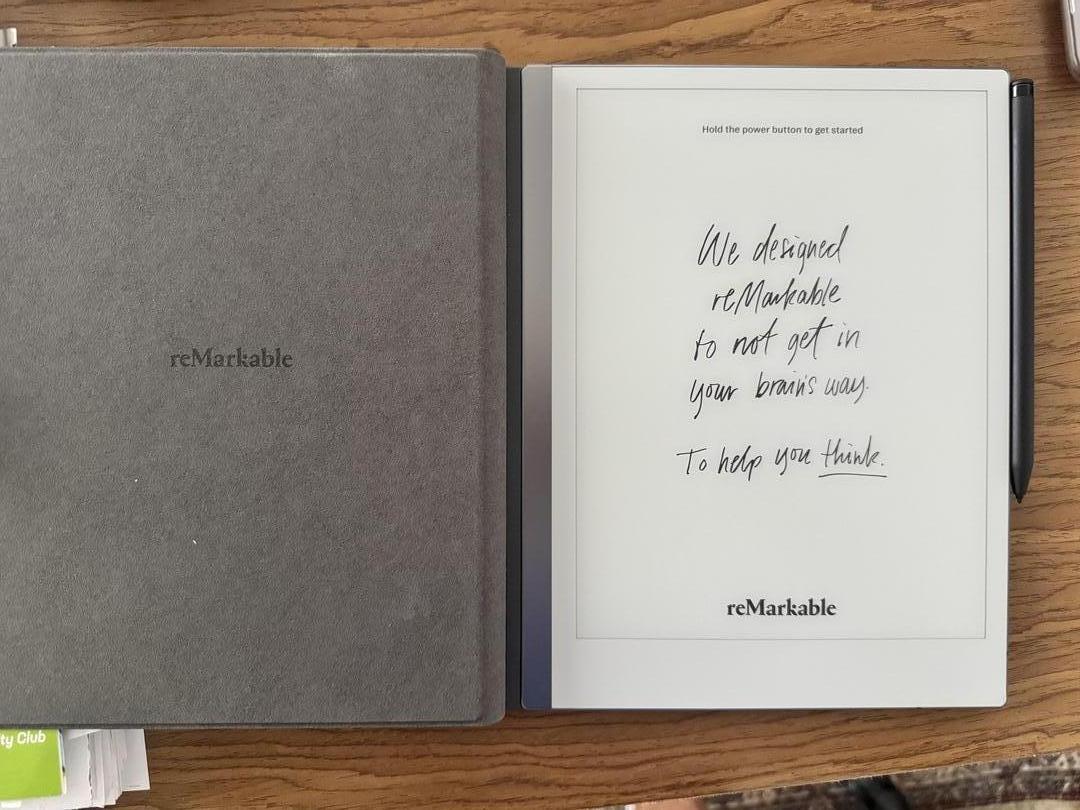 reMarkable
Hold the power button to get started
We designed
reMarkable
to not get in
your brain's way.
To help you think.
reMarkable
ty Club